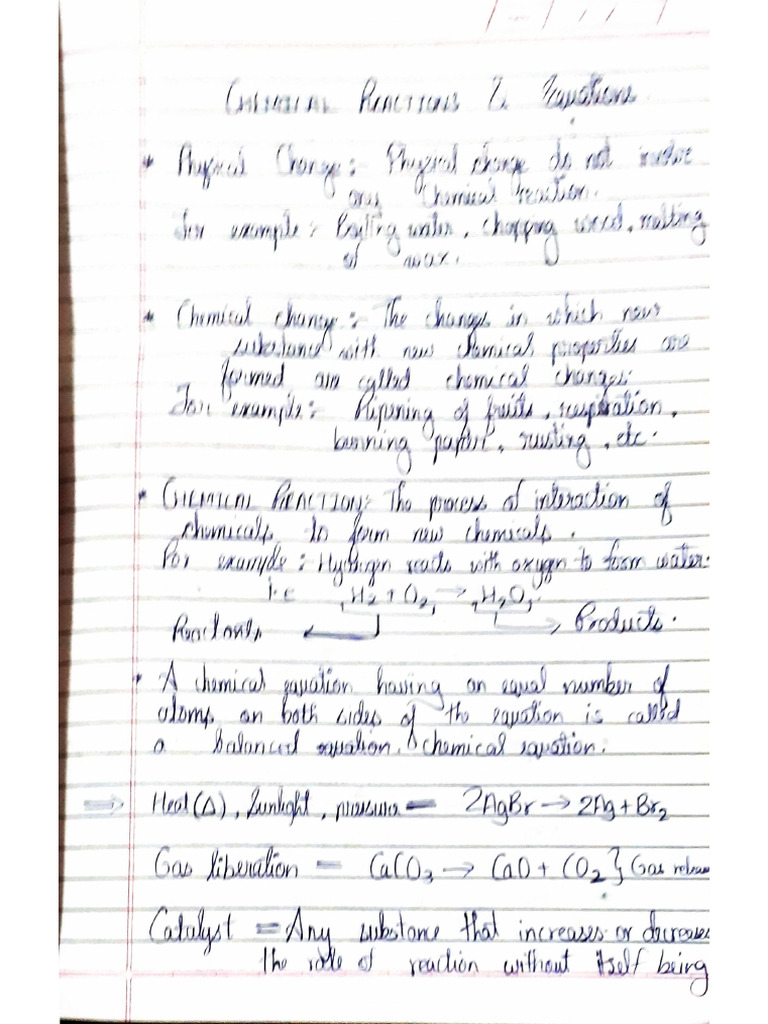 CHEMICAL REACTIONS & Equations
* Physical Change:- Physical change do not involve
any Chemical reaction.
For example:- Boiling water, chopping wood, melting
of wax.
* Chemical change:- The changes in which new
substance with new chemical properties are
formed are called chemical changes.
For example:- Ripening of fruits, respiration,
burning paper, rusting, etc.
* CHEMICAL REACTION:- The process of interaction of
chemicals to form new chemicals.
For example: Hydrogen reacts with oxygen to form water.
i.e H2 + O2 → H2O
Reactants ← → Products.
• A chemical equation having an equal number of
atoms on both sides of the equation is called
a balanced equation. chemical equation.
⇒ Heat (Δ), Sunlight, pressure = 2AgBr → 2Ag + Br2
Gas liberation = CaCO3 → CaO + CO2 } Gas release
Catalyst = Any substance that increases or decreases
the rate of reaction without itself being